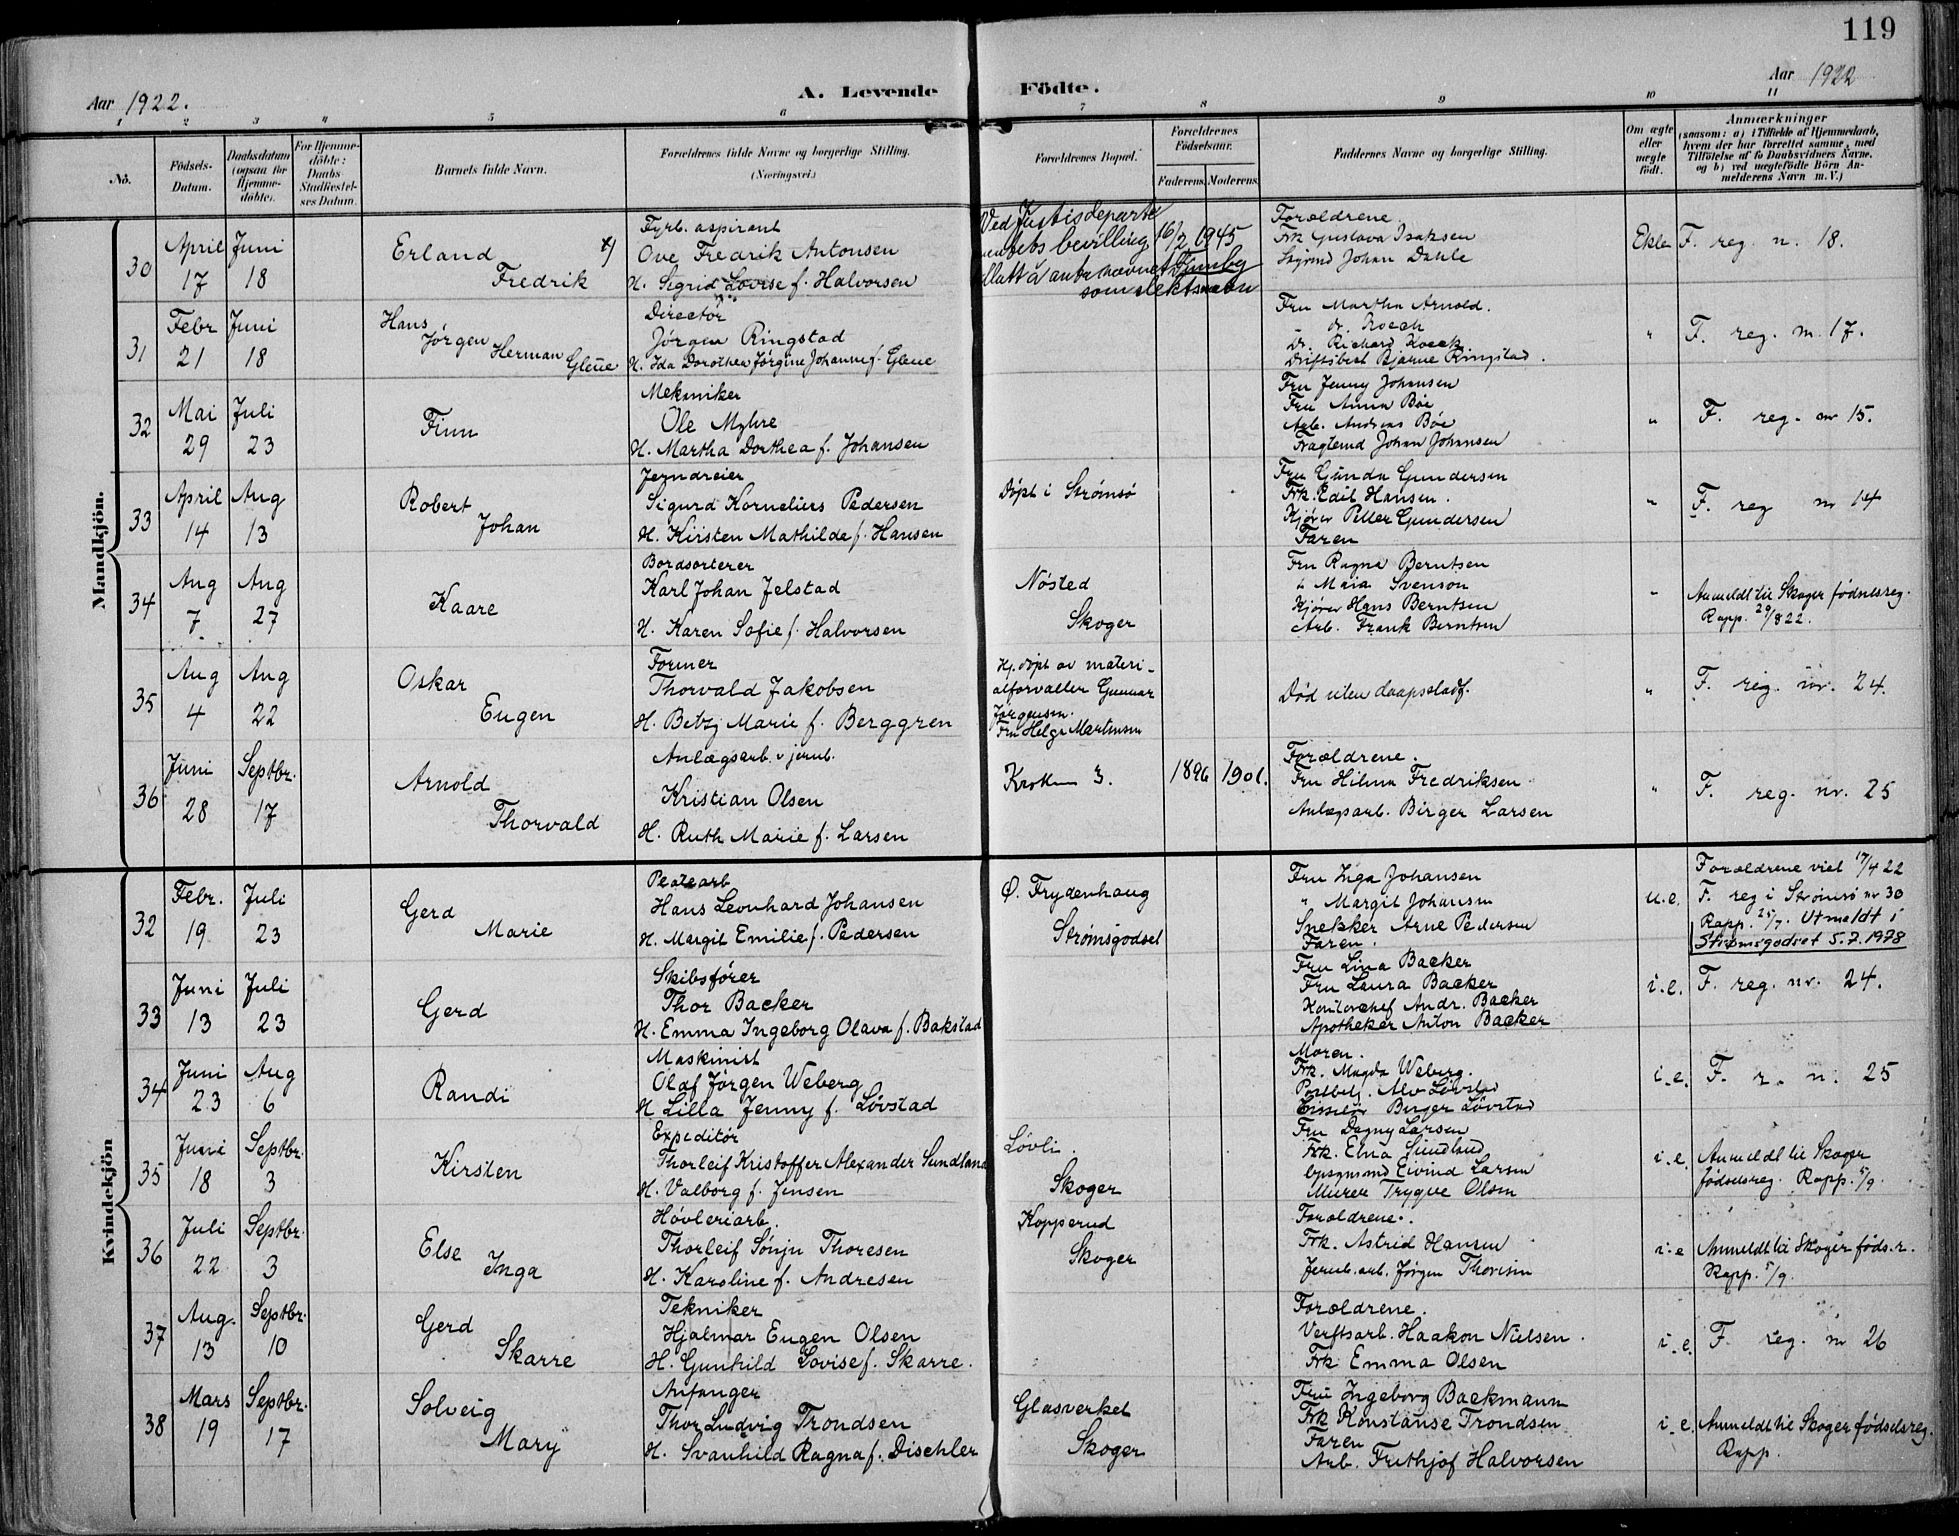 119
Aar 1922.
A. Levende Födte.
Aar 1922
1 2 3 4 5 6 7 8 9 10 11
No.
Födsels-Datum.
Daabsdatum (ogsaa for Hjemme-döbte).
For Hjemme-döbte: Daabs Stadfæstel-ses Datum.
Barnets fulde Navn.
Forældrenes fulde Navne og borgerlige Stilling. (Næringsvei.)
Forældrenes Bopæl.
Forældrenes Födselsaar.
Faderens. Moderens.
Faddernes Navne og borgerlige Stilling.
Om ægte eller uægte födt.
Anmærkninger (saasom: a) i Tilfælde af Hjemmedaab, hvem der har forrettet samme, med Tilföielse af to Daabsvidners Navne, og b) ved uægtefödte Börn Anmelderens Navn m. V.)
Mandkjön.
30
April 17
Juni 18
Erland Fredrik x)
Fyrb. aspirant
Ove Fredrik Antonsen
H. Sigrid Lovise f. Halvorsen
Ved Justisdeparte
mentets bevilling 16/2 1945
tillatt å anta navnet
som slektsnavn
Forældrene.
Frk Gustava Isaksen
Johan Dahle
Ekte
F. reg. n. 18.
31
Febr 21
Juni 18
Hans Jørgen Herman Gleüe
Directør
Jørgen Ringstad
H. Ida Dorothea Jørgine Johanne f. Gleue
Fru Martha Arnold.
Dr. Richard
Driftsbest Bjarne Ringstad.
"
F. reg. n. 17.
32
Mai 29
Juli 23
Finn
Mekaniker
Ole Myhre
H. Martha Dorthea f. Johansen
Fru Jenny Johansen
Fru Anna Bøe
Arb. Andreas Bøe
Johan Johansen
"
F. reg. nr 15.
33
April 14
Aug 13
Robert Johan
Jerndreier
Sigurd Kornelius Pedersen
H. Kirsten Mathilde f. Hansen
Døpt i Strømsø
Fru Gunda Gundersen
Frk. Edit Hansen.
Kjører Petter Gundersen
Faren
"
F. reg nr 14
34
Aug 7
Aug 27
Kaare
Bordsorterer
Karl Johan Jelstad
H. Karen Sofie f. Halvorsen
Nøsted
Skoger
Fru Ragna Berntsen
" Maia Svenson
Kjører Hans Berntsen
Arb. Frank Berntsen
"
Anmeldt til Skoger fødselsreg.
Rapp. 29/8 22.
35
Aug 4
Aug 22
Oskar Eugen
Former
Thorvald Jakobsen
H. Betzy Marie f. Berggren
Hj. døpt av materi-
alforvalter Gunnar
Jørgensen.
Fru Helga Martinsen
Død uten daapsstadf.
"
F. reg. nr. 24.
36
Juni 28
Septbr. 17
Arnold Thorvald
Anlægsarb. v jernb.
Kristian Olsen
H. Ruth Marie f. Larsen
Kroken 3.
1896 1901.
Forældrene.
Fru Hilma Fredriksen
Anlægsarb. Birger Larsen
"
F. reg. nr. 25
Kvindekjön
32
Febr. 19
Juli 23
Gerd Marie
Hans Leonhard Johansen
H. Margit Emilie f. Pedersen
Ø. Frydenhaug
Strømsgodset
Fru Inga Johansen
" Margit Johansen
Snekker Arne Pedersen
Faren.
u.e.
Forældrene viet 17/4 22
F. reg i Strømsø nr 30
Rapp. 25/7. Utmeldt i
Strømsgodset 5.7.1978
33
Juni 13
Juli 23
Gerd
Skibsfører
Thor Backer
H. Emma Ingeborg Olava f. Bakstad
Fru Lina Backer
Fru Laura Backer
Kontorchef Andr. Backer
Apotheker Anton Backer
i.e.
F. reg. nr. 24.
34
Juni 23
Aug 6
Randi
Maskinist
Olaf Jørgen Weberg
H Lilla Jenny f. Løvstad
Moren.
Frk. Magda Weberg.
Postbetj. Alv Løvstad
Birger Løvstad
i.e.
F. r. n. 25
35
Juni 18
Septbr. 3
Kirsten
Expeditør
Thorleif Kristoffer Alexander Sundland
H. Valborg f. Jensen
Løvli.
Skoger
Fru Dagny Larsen
Frk. Elna Sundlund
Eivind Larsen
Murer Trygve Olsen
i.e.
Anmeldt til Skoger
fødselsreg. Rapp. 5/9.
36
Juli 22
Septbr. 3
Else Inga
Høvleriarb.
Thorleif Sönju Thoresen
H. Karoline f. Andresen
Kopperud
Skoger
Forældrene.
Frk. Astrid Hansen
Jernb.arb. Jørgen Thoresen
i.e
Anmeldt til Skoger føds.r.
Rapp. 5/9.
37
Aug. 13
Septbr. 10
Gerd Skarre
Tekniker
Hjalmar Eugen Olsen
H. Gunhild Lovise f. Skarre.
Forældrene.
Verftsarb. Haakon Nielsen.
Frk. Emma Olsen
i.e.
F. reg. nr 26
38
Mars 19
Septbr. 17
Solveig Mary
Anfanger
Thor Ludvig Trondsen
H. Svanhild Ragna f. Dischler
Glasverket
Skoger
Fru Ingeborg Backmann
Frk Konstanse Trondsen
Faren
Arb. Frithjof Halvorsen
i.e.
Anmeldt til Skoger fødselsreg.
Rapp.